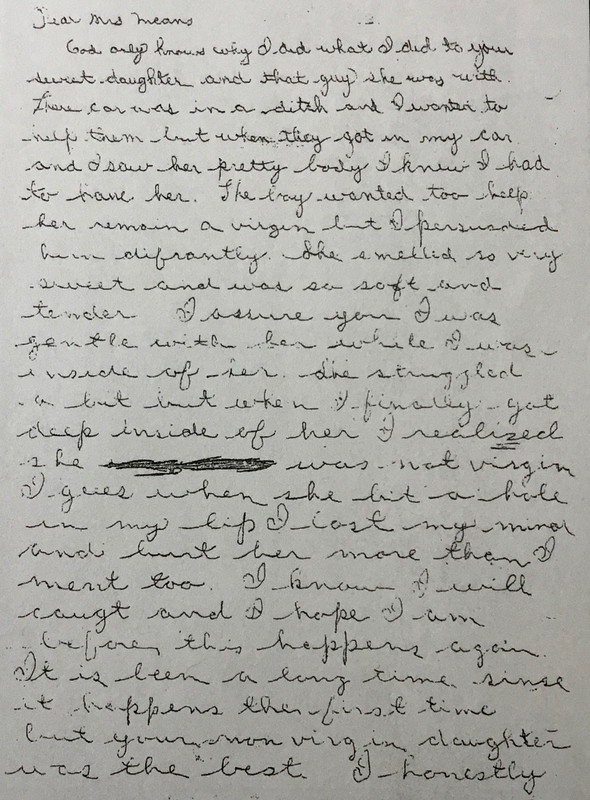 Dear Mrs Means
God only knows why I did what I did to your
sweet daughter and that guy she was with.
There car was in a ditch and I wanted to
help them but when they got in my car
and I saw her pretty body I knew I had
to have her. The boy wanted too help
her remain a virgin but I persuaded
him difrantly. She smelled so very
sweet and was so soft and
tender I assure you I was
gentle with her while I was
inside of her. She struggled
a bit but when I finally got
deep inside of her I realized
she was not virgin
I gues when she bit a hole
in my lip I lost my mind
and hurt her more than I
ment too. I know I will
caugt and I hope I am
before this happens again.
It is been a long time since
it happens the first time
but your non virgin daughter
was the best. I honestly